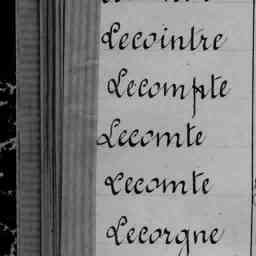 Lecointre
Lecompte
Lecomte
Lecomte
Lecorgne